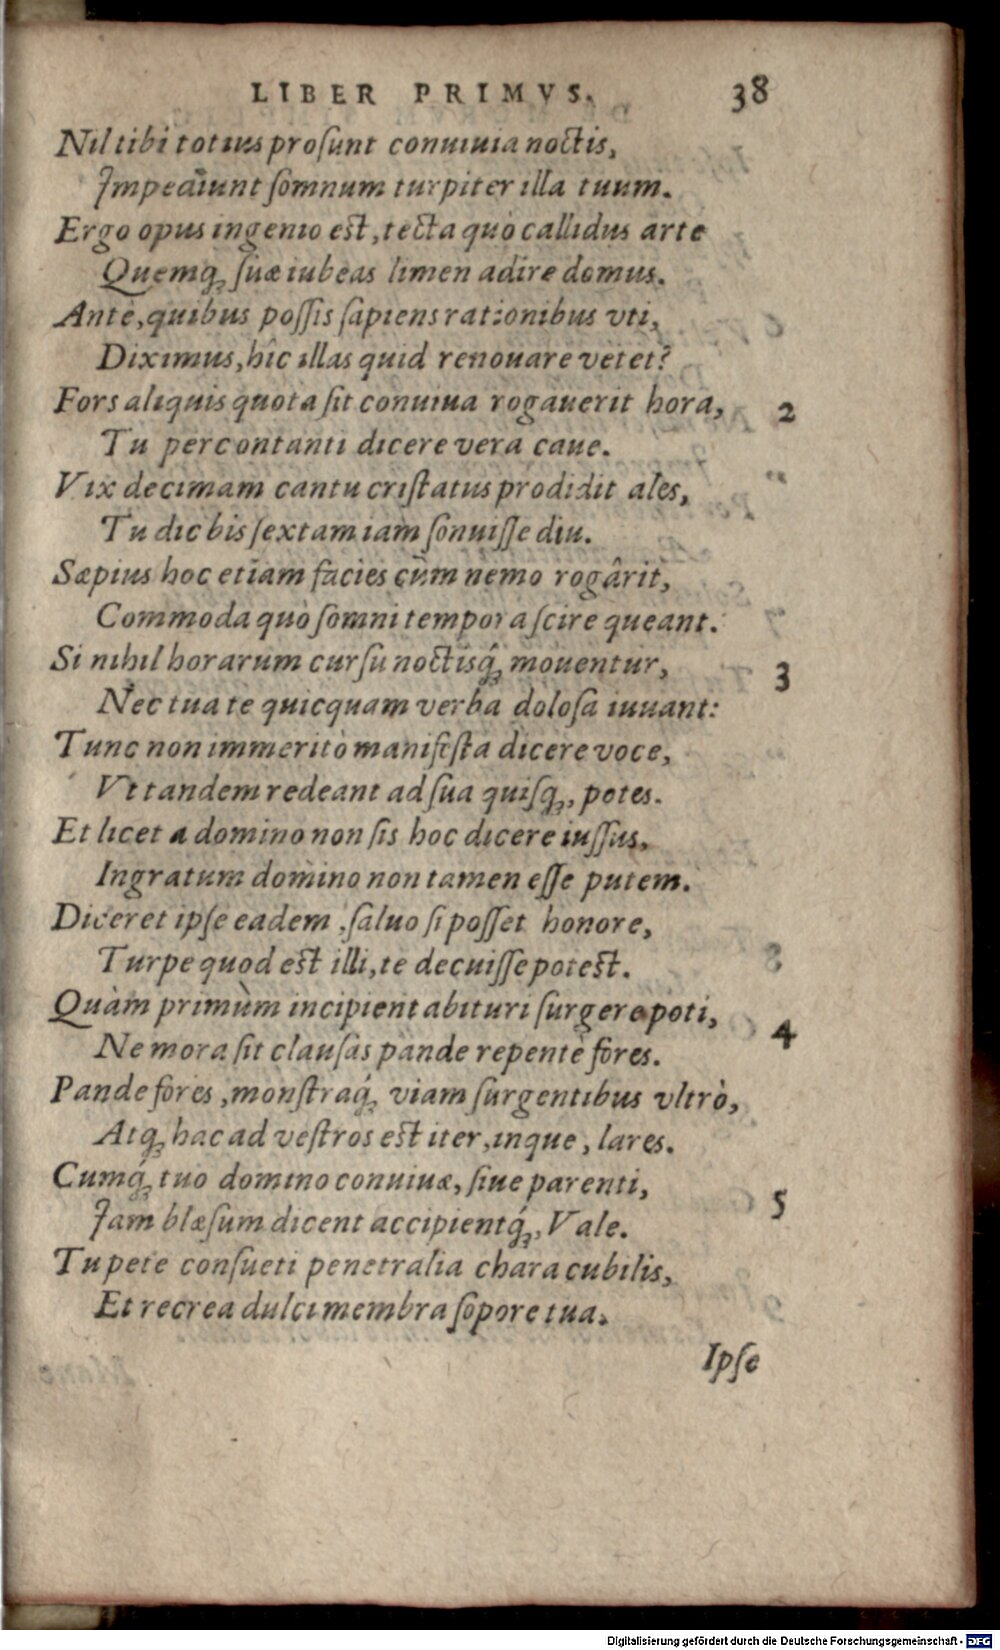 LIBER PRIMVS. 38
Nil tibi totius proſunt conuiuia noctis,
Impediunt ſomnum turpiter illa tuum.
Ergo opus ingenio eſt, tecta quò callidus arte
Quemq; ſuæ iubeas limen adire domus.
Antè, quibus poſſis ſapiens rationibus vti,
Diximus, hîc illas quid renouare vetet?
Fors aliquis quota ſit conuiua rogauerit hora, 2
Tu percontanti dicere vera caue.
Vix decimam cantu criſtatus prodidit ales,
Tu dic bis ſextam iam ſonuiſſe diu.
Sæpius hoc etiam facies cùm nemo rogârit,
Commoda quò ſomni tempora ſcire queant.
Si nihil horarum curſu noctisq́; mouentur, 3
Nec tua te quicquam verba doloſa iuuant:
Tunc non immeritò manifeſta dicere voce,
Vt tandem redeant ad ſua quiſq;, potes.
Et licet a domino non ſis hoc dicere iuſſus,
Ingratum domino non tamen eſſe putem.
Diceret ipſe eadem, ſaluo ſi poſſet honore,
Turpe quod eſt illi, te decuiſſe poteſt.
Quàm primùm incipient abituri ſurgere poti, 4
Ne mora ſit clauſas pande repentè fores.
Pande fores, monſtraq́; viam ſurgentibus vltrò,
Atq; hac ad veſtros eſt iter, inque, lares.
Cumq́; tuo domino conuiuæ, ſiue parenti, 5
Iam blæſum dicent accipientq́;, Vale.
Tu pete conſueti penetralia chara cubilis,
Et recrea dulci membra ſopore tua.
Ipſe
Digitalisierung gefördert durch die Deutsche Forschungsgemeinschaft - DFG